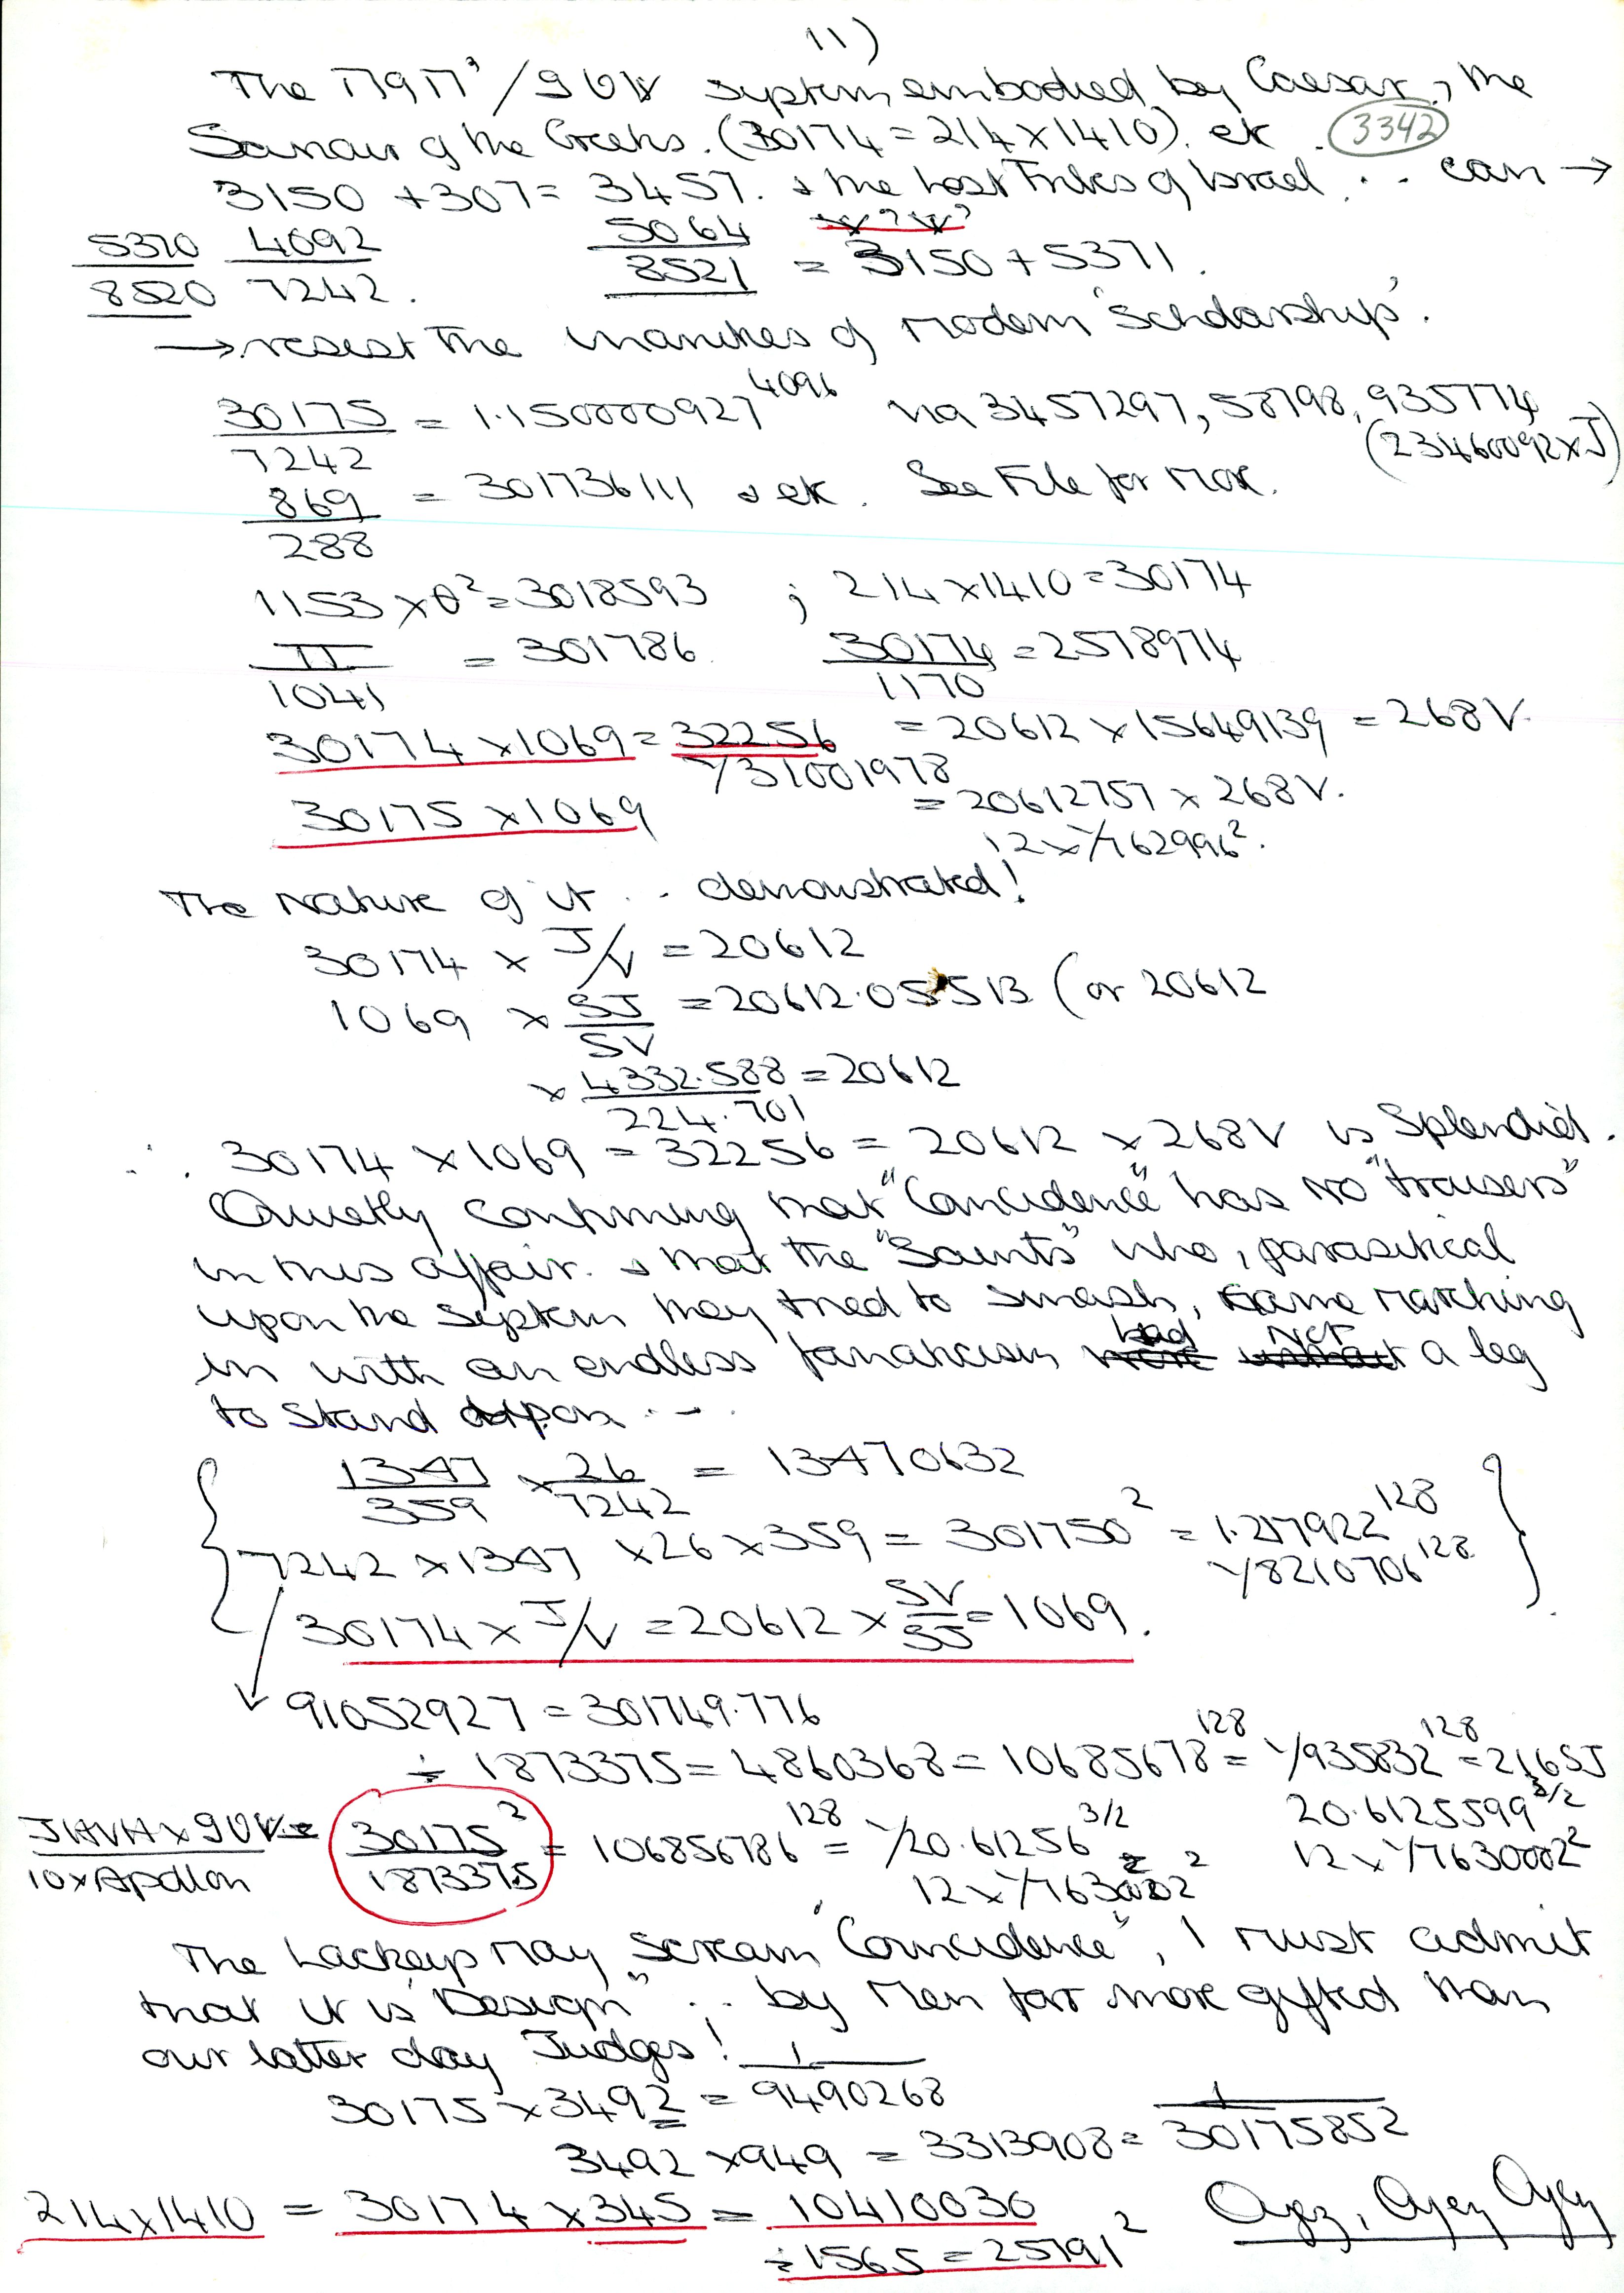 11)
The system, embodied by Caesar, the
Saviour of the Greeks. (30174 = 214 x 1410). etc. 3342
3150 + 307 = 3457. & the Lost Tribes of Israel ... can →
5370 4092 5064
8520 7242. 8521 = 3150 + 5371.
→ resist the inanities of Modern 'Scholarship'.
30175 = 1.150000927^4096 via 3457297, 58798, 935774
7242 (23460092 x J)
869 = 301736111 & etc. See File for More.
288
1153 x θ² = 3018593 ; 214 x 1410 = 30174
π = 301786 30174 = 2578974
1041 1170
30174 x 1069 = 32256 = 20612 x 15649139 = 268V.
1/31001978
30175 x 1069 = 20612757 x 268V.
12 x 1/762996².
The Nature of it .. demonstrated!
30174 x J/V = 20612
1069 x SJ = 20612.05513 (or 20612
SV
x 4332.588 = 20612
224.701
∴ 30174 x 1069 = 32256 = 20612 x 268V is Splendid.
Quietly confirming that "Coincidence" has no "trousers"
in this affair. & that the "Saints" who, parasitical
upon the System they tried to smash, came marching
in with an endless fanaticism had not a leg
to stand upon ...
1347 x 26 = 13470632
359 7242
7242 x 1347 x 26 x 359 = 301750² = 1.217922^128
1/8210706^128
30174 x J/V = 20612 x SV = 1069.
SJ
91052927 = 301749.776
÷ 1873375 = 4860368 = 10685678^128 = 1/935832^128 = 216SJ
20.6125599^3/2
JHVH x 90V = 30175² = 106856786^128 = 1/20.61256^3/2 12 x 1/7630002²
10 x Apollon 1873375 12 x 1/7630002²
The Lackeys may scream "Coincidence", I must admit
that it is "Design" ... by Men far more gifted than
our latter day Judges! 1
30175 x 3492 = 9490268 1
3492 x 949 = 3313908 = 30175852
214 x 1410 = 30174 x 345 = 10410030
÷ 1565 = 25791² Oyez, Oyez, Oyez